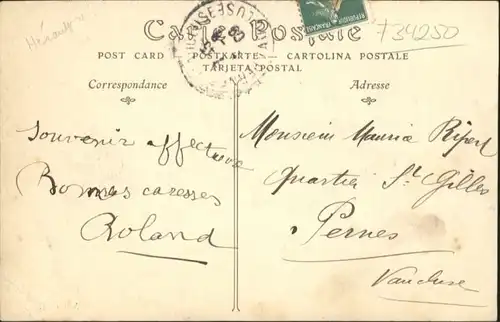 Hérault
F34250
Carte Postale
POST CARD — POSTKARTE — CARTOLINA POSTALE
TARJETA POSTAL
Correspondance
Adresse
Souvenir affectueux
Bonnes caresses
Roland
Monsieur Maurice Ripert
Quartier St Gilles
Pernes
Vaucluse
REPUBLIQUE FRANCAISE